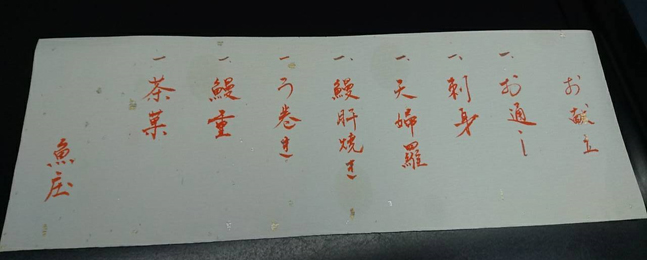 お献立
一、お通し
一、刺身
一、天婦羅
一、鰻肝焼き
一、う巻き
一、鰻重
一、茶菓
魚庄